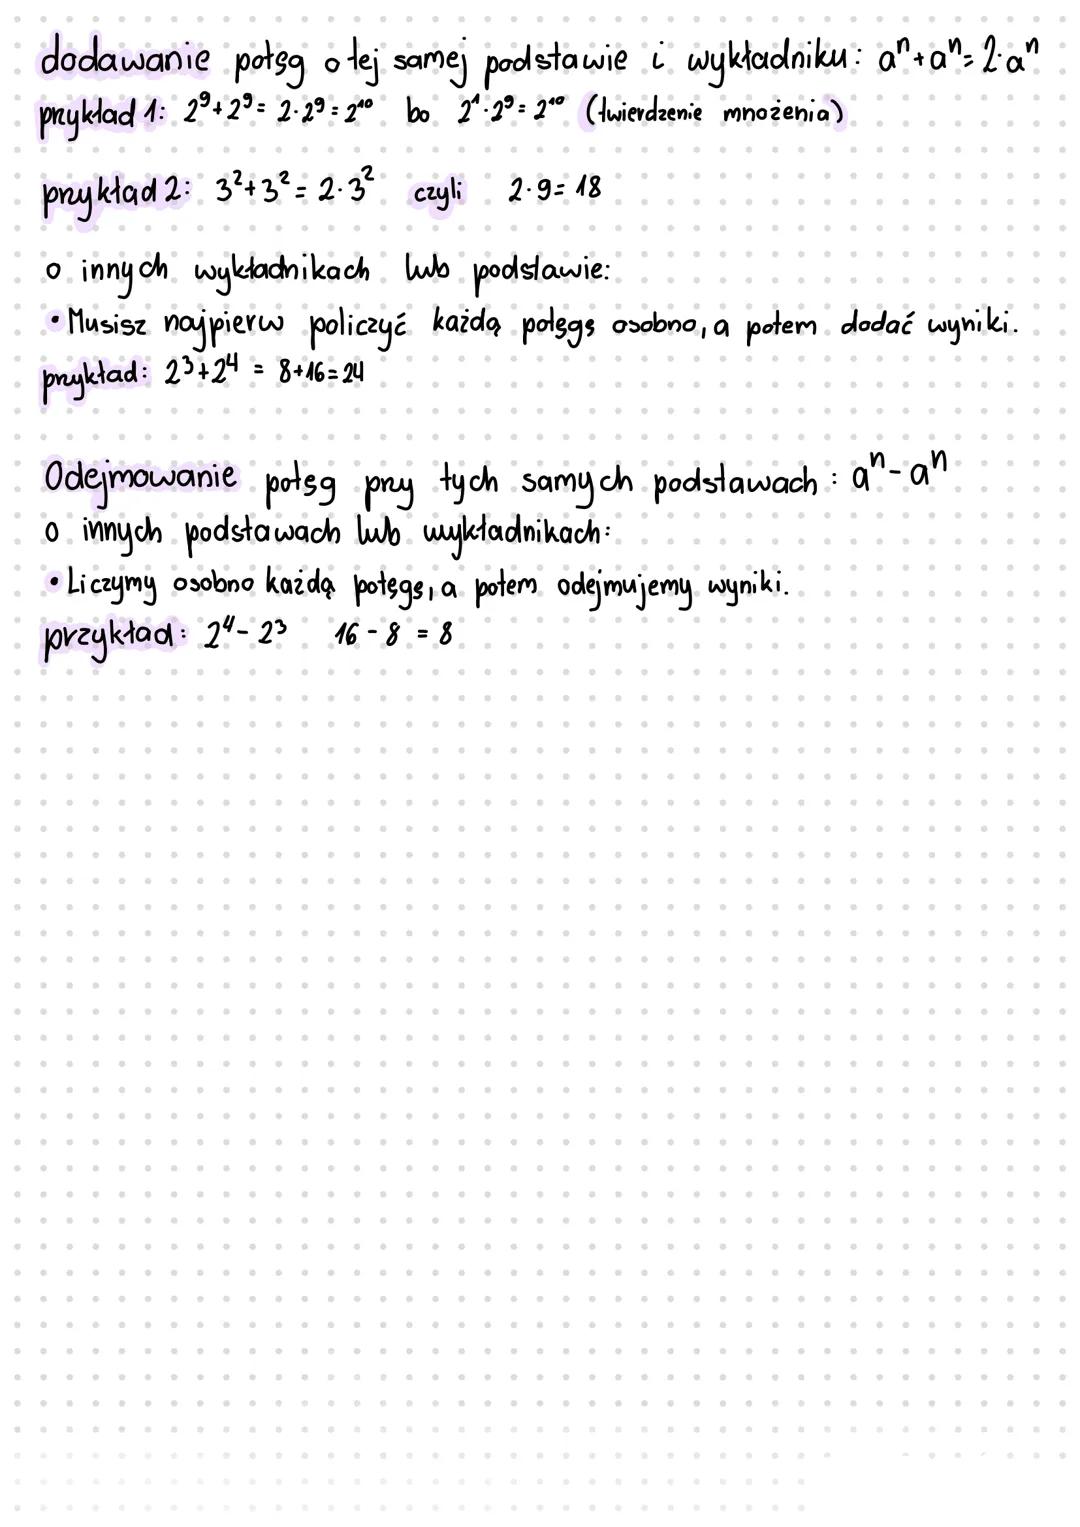 dodawanie potęg o tej samej podstawie i wykładniku: aⁿ+aⁿ=2·aⁿ
przykład 1: 2⁹+2⁹=2·2⁹=2¹⁰ bo 2¹·2⁹=2¹⁰ (twierdzenie mnożenia)
przykład 2: 3²+3²=2·3² czyli 2·9=18
o innych wykładnikach lub podstawie:
• Musisz najpierw policzyć każdą potęgę osobno, a potem dodać wyniki.
przykład: 2³+2⁴ = 8+16=24
Odejmowanie potęg przy tych samych podstawach: aⁿ-aⁿ
o innych podstawach lub wykładnikach:
• Liczymy osobno każdą potęgę, a potem odejmujemy wyniki.
przykład: 2⁴-2³ 16-8=8